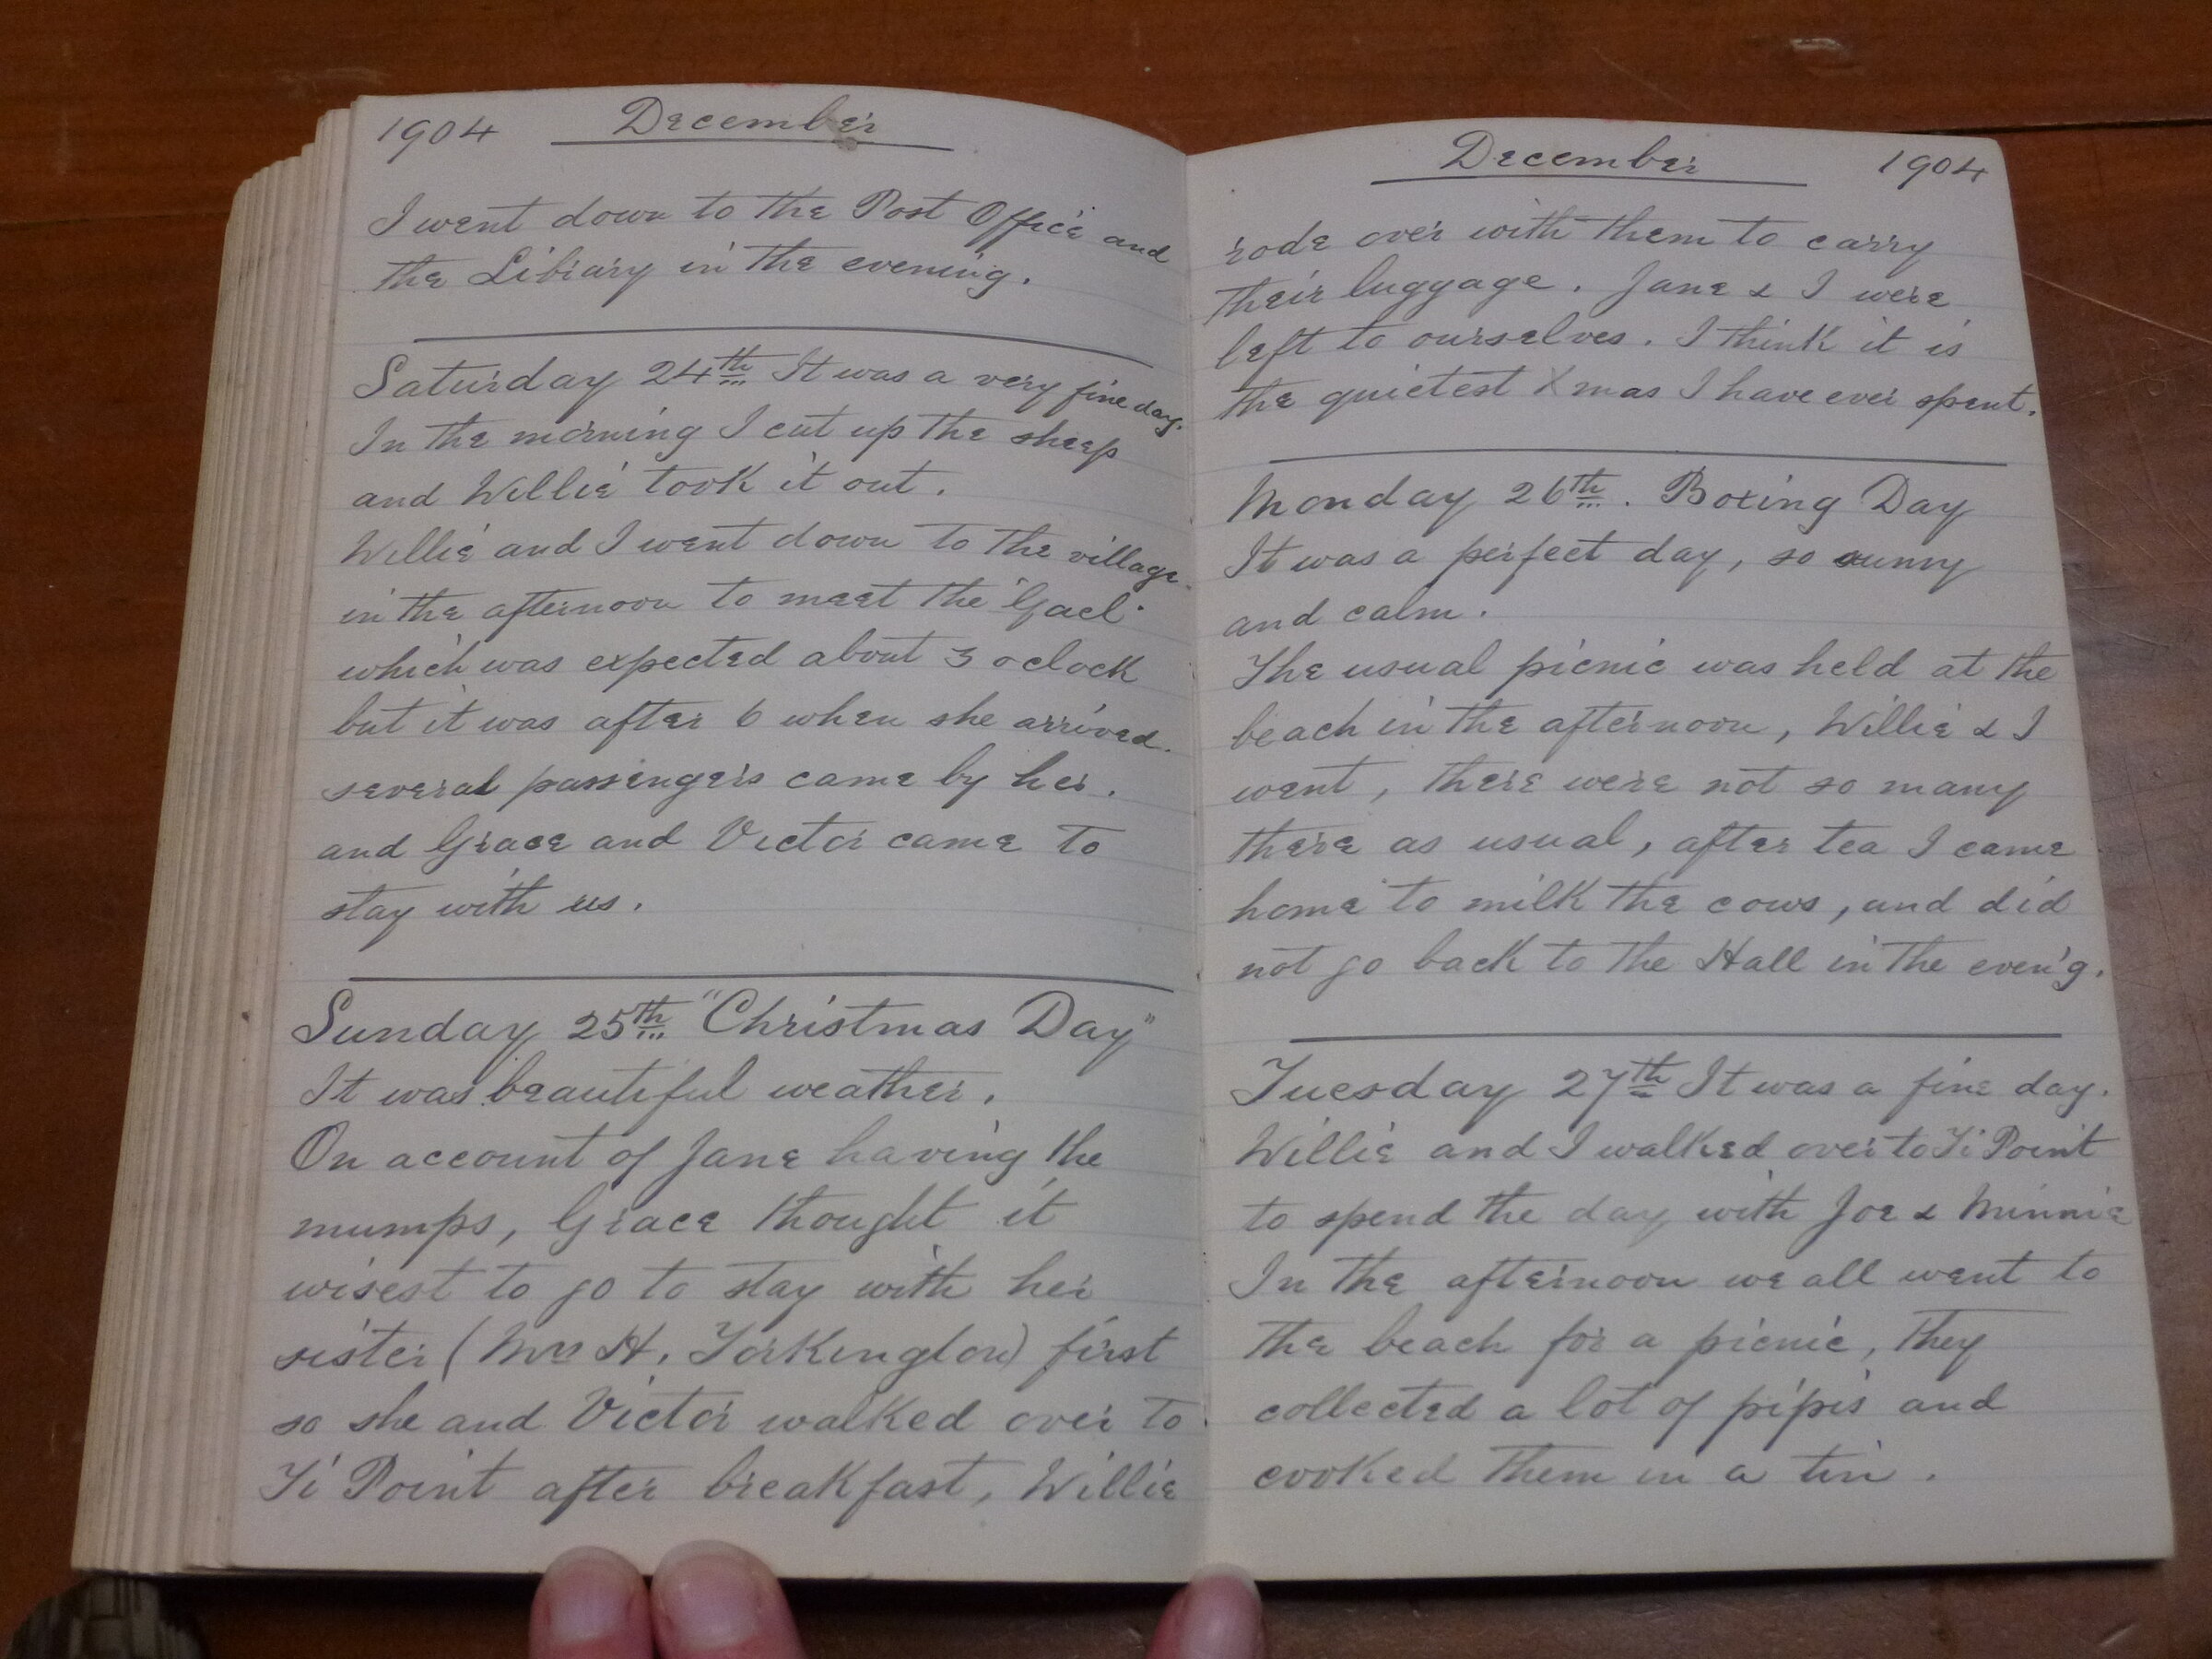 1904 December
I went down to the Post Office and
the Library in the evening.
Saturday 24th It was a very fine day.
In the morning I cut up the sheep
and Willie took it out.
Willie and I went down to the village
in the afternoon to meet the 'Gael'
which was expected about 3 oclock
but it was after 6 when she arrived.
several passengers came by her.
and Grace and Victor came to
stay with us.
Sunday 25th "Christmas Day"
It was beautiful weather.
On account of Jane having the
mumps, Grace thought it
wisest to go to stay with her
sister (Mrs H. Torkington) first
so she and Victor walked over to
Ti Point after breakfast, Willie
December 1904
rode over with them to carry
their luggage. Jane & I were
left to ourselves. I think it is
the quietest Xmas I have ever spent.
Monday 26th. Boxing Day
It was a perfect day, so sunny
and calm.
The usual picnic was held at the
beach in the afternoon, Willie & I
went, there were not so many
there as usual, after tea I came
home to milk the cows, and did
not go back to the Hall in the even'g.
Tuesday 27th It was a fine day.
Willie and I walked over to Ti Point
to spend the day with Joe & Minnie
In the afternoon we all went to
the beach for a picnic, they
collected a lot of pipis and
cooked them in a tin.